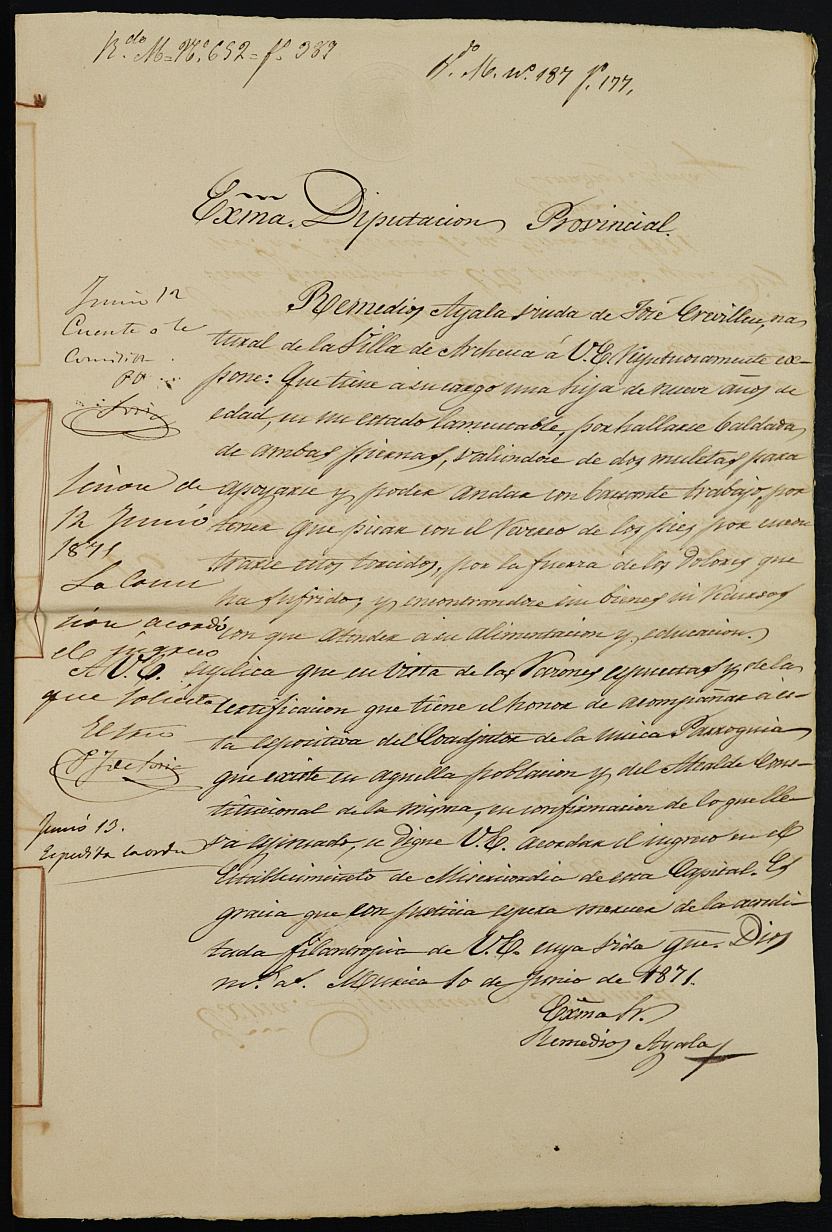 R.do M= N.o 652= f.o 389
R.do M. n.o 187 f.o 177.
Exma. Diputacion Provincial.
Junio 12
Cuente a la
Comision
Soria
Remedios Ayala viuda de José Crevillen, na
tural de la Villa de Archena á V.E. respetuosamente ex-
pone: Que tiene a su cargo una hija de nueve años de
edad, en un estado lamentable, por hallarse baldada
de ambas piernas, valiendose de dos muletas para
apoyarse y poder andar con bastante trabajo, por
tener que pisar con el reverso de los pies por encon
trarse estos torcidos, por la fuerza de los dolores que
ha sufrido; y encontrandose sin bienes ni recursos
con que atender a su alimentacion y educacion.
A V.E. suplica que en vista de las razones espuestas y de la
certificacion que tiene el honor de acompañar á es-
ta espositiva del Coadjutor de la unica Parroquia
que existe en aquella poblacion y del Alcalde Cons-
titucional de la misma, en confirmacion de lo que lle-
va espresado, se digne V.E. acordar el ingreso en el
Establecimiento de Misericordia de esta Capital. Es
gracia que con justicia espera merecer de la acredi-
tada filantropia de V.E. cuya vida gue. Dios
m.s a.s Murcia 10 de Junio de 1871.
Exma Sr.
Remedios Ayala
Sesion de
12 Junio
1871
La Comi
sion acordó
el ingreso
que solicita
El Srio
P. J. de Soria
Junio 13.
Espedida la orden